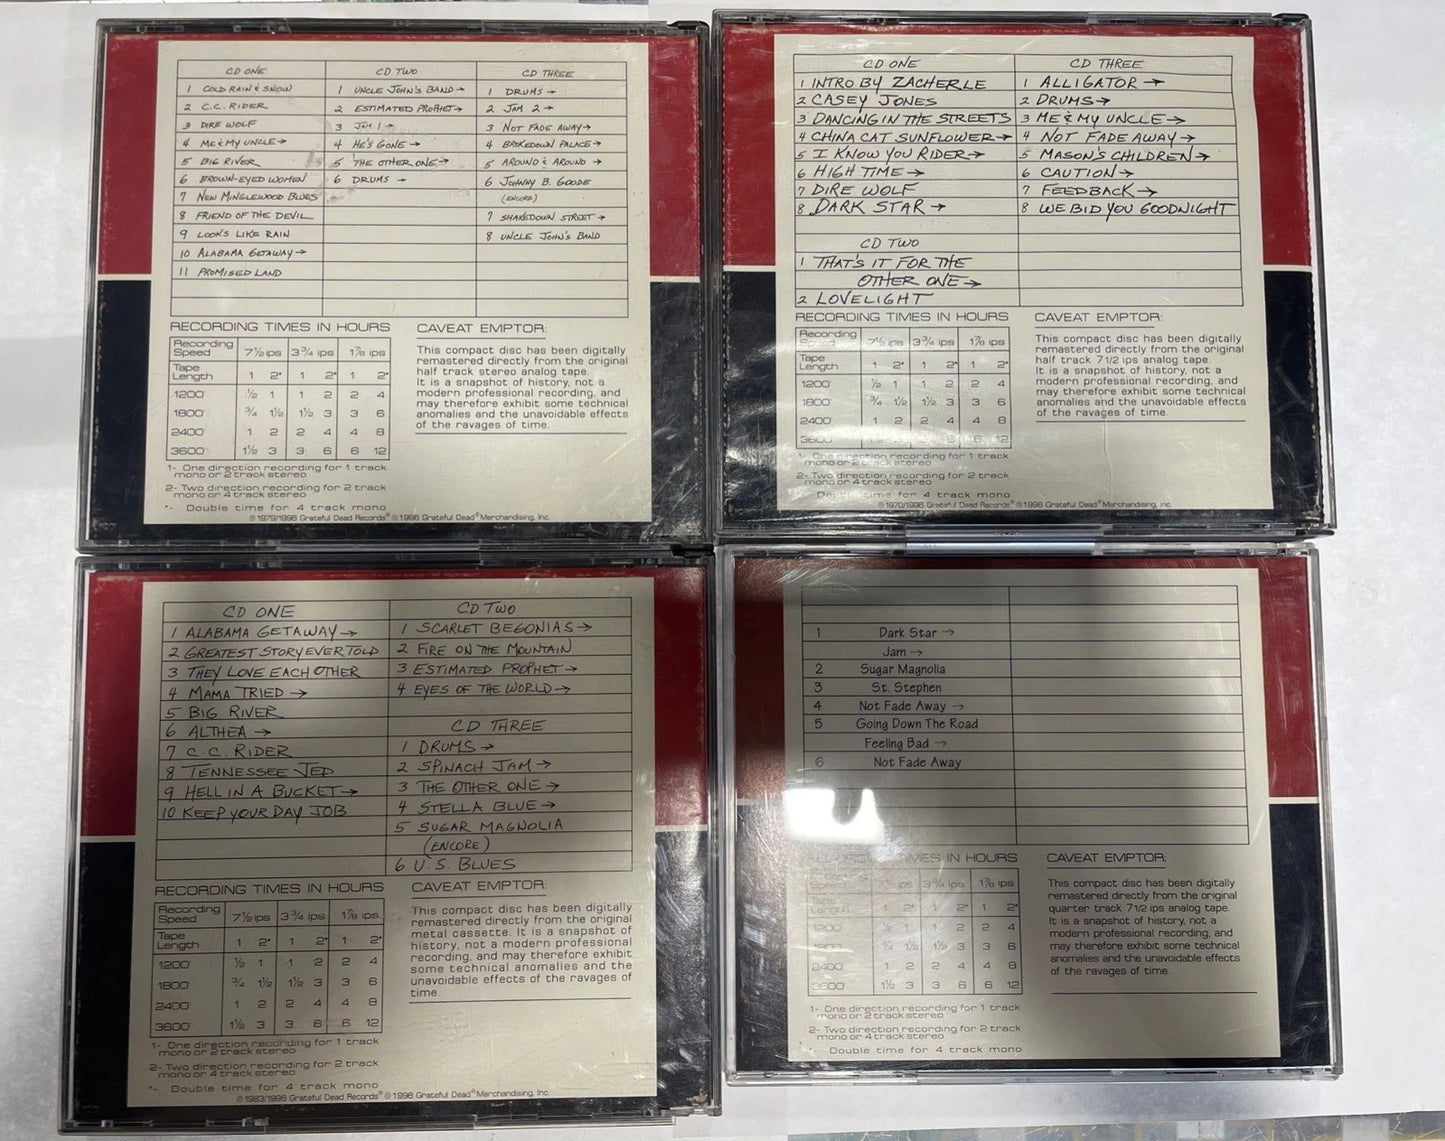 CD ONE
1 COLD RAIN & SNOW
2 C.C. RIDER
3 DIRE WOLF
4 ME & MY UNCLE →
5 BIG RIVER
6 BROWN-EYED WOMEN
7 NEW MINGLEWOOD BLUES
8 FRIEND OF THE DEVIL
9 LOOKS LIKE RAIN
10 ALABAMA GETAWAY →
11 PROMISED LAND
CD TWO
1 UNCLE JOHN'S BAND →
2 ESTIMATED PROPHET →
3 JAM 1 →
4 HE'S GONE →
5 THE OTHER ONE →
6 DRUMS →
CD THREE
1 DRUMS →
2 JAM 2 →
3 NOT FADE AWAY →
4 BROKEDOWN PALACE →
5 AROUND & AROUND →
6 JOHNNY B. GOODE
(ENCORE)
7 SHAKEDOWN STREET →
8 UNCLE JOHN'S BAND
RECORDING TIMES IN HOURS
Recording Speed 7½ ips 3¾ ips 1⅞ ips
Tape Length 1 2* 1 2* 1 2*
1200' ½ 1 1 2 2 4
1800' ¾ 1½ 1½ 3 3 6
2400' 1 2 2 4 4 8
3600' 1½ 3 3 6 6 12
1- One direction recording for 1 track
mono or 2 track stereo
2- Two direction recording for 2 track
mono or 4 track stereo
*- Double time for 4 track mono
CAVEAT EMPTOR:
This compact disc has been digitally
remastered directly from the original
half track stereo analog tape.
It is a snapshot of history, not a
modern professional recording, and
may therefore exhibit some technical
anomalies and the unavoidable effects
of the ravages of time.
℗ 1979/1996 Grateful Dead Records® © 1996 Grateful Dead® Merchandising, Inc.
CD ONE
1 INTRO BY ZACHERLE
2 CASEY JONES
3 DANCING IN THE STREETS
4 CHINA CAT SUNFLOWER →
5 I KNOW YOU RIDER →
6 HIGH TIME →
7 DIRE WOLF
8 DARK STAR →
CD TWO
1 THAT'S IT FOR THE
OTHER ONE →
2 LOVELIGHT
CD THREE
1 ALLIGATOR →
2 DRUMS →
3 ME & MY UNCLE →
4 NOT FADE AWAY →
5 MASON'S CHILDREN →
6 CAUTION →
7 FEEDBACK →
8 WE BID YOU GOODNIGHT
RECORDING TIMES IN HOURS
Recording Speed 7½ ips 3¾ ips 1⅞ ips
Tape Length 1 2* 1 2* 1 2*
1200' ½ 1 1 2 2 4
1800' ¾ 1½ 1½ 3 3 6
2400' 1 2 2 4 4 8
3600' 1½ 3 3 6 6 12
1- One direction recording for 1 track
mono or 2 track stereo
2- Two direction recording for 2 track
mono or 4 track stereo
Double time for 4 track mono
CAVEAT EMPTOR:
This compact disc has been digitally
remastered directly from the original
half track 7 1/2 ips analog tape.
It is a snapshot of history, not a
modern professional recording, and
may therefore exhibit some technical
anomalies and the unavoidable effects
of the ravages of time.
℗ 1970/1996 Grateful Dead Records® © 1996 Grateful Dead® Merchandising, Inc.
CD ONE
1 ALABAMA GETAWAY →
2 GREATEST STORY EVER TOLD
3 THEY LOVE EACH OTHER
4 MAMA TRIED →
5 BIG RIVER
6 ALTHEA →
7 C.C. RIDER
8 TENNESSEE JED
9 HELL IN A BUCKET →
10 KEEP YOUR DAY JOB
CD TWO
1 SCARLET BEGONIAS →
2 FIRE ON THE MOUNTAIN
3 ESTIMATED PROPHET →
4 EYES OF THE WORLD →
CD THREE
1 DRUMS →
2 SPINACH JAM →
3 THE OTHER ONE →
4 STELLA BLUE →
5 SUGAR MAGNOLIA
(ENCORE)
6 U.S. BLUES
RECORDING TIMES IN HOURS
Recording Speed 7½ ips 3¾ ips 1⅞ ips
Tape Length 1 2* 1 2* 1 2*
1200' ½ 1 1 2 2 4
1800' ¾ 1½ 1½ 3 3 6
2400' 1 2 2 4 4 8
3600' 1½ 3 3 6 6 12
1- One direction recording for 1 track
mono or 2 track stereo
2- Two direction recording for 2 track
mono or 4 track stereo
*- Double time for 4 track mono
CAVEAT EMPTOR:
This compact disc has been digitally
remastered directly from the original
metal cassette. It is a snapshot of
history, not a modern professional
recording, and may therefore exhibit
some technical anomalies and the
unavoidable effects of the ravages of
time.
℗ 1983/1996 Grateful Dead Records® © 1996 Grateful Dead® Merchandising, Inc.
1 Dark Star →
Jam →
2 Sugar Magnolia
3 St. Stephen
4 Not Fade Away →
5 Going Down The Road
Feeling Bad →
6 Not Fade Away
RECORDING TIMES IN HOURS
Recording Speed 7½ ips 3¾ ips 1⅞ ips
Tape Length 1 2* 1 2* 1 2*
1200' ½ 1 1 2 2 4
1800' ¾ 1½ 1½ 3 3 6
2400' 1 2 2 4 4 8
3600' 1½ 3 3 6 6 12
1- One direction recording for 1 track
mono or 2 track stereo
2- Two direction recording for 2 track
mono or 4 track stereo
Double time for 4 track mono
CAVEAT EMPTOR:
This compact disc has been digitally
remastered directly from the original
quarter track 7 1/2 ips analog tape.
It is a snapshot of history, not a
modern professional recording, and
may therefore exhibit some technical
anomalies and the unavoidable effects
of the ravages of time.